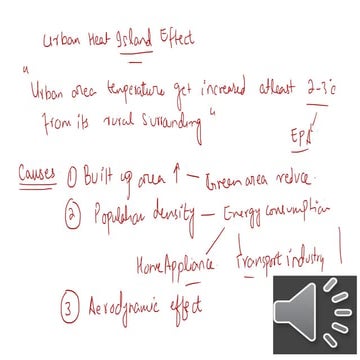 Urban Heat Island Effect
"Urban area temperature get increased atleast 2-3°c
from its rural surrounding"
EPA
Causes ① Built up area ↑ - Green area reduce.
② Population density - Energy consumption
Home Appliance Transport industry
③ Aerodynamic effect